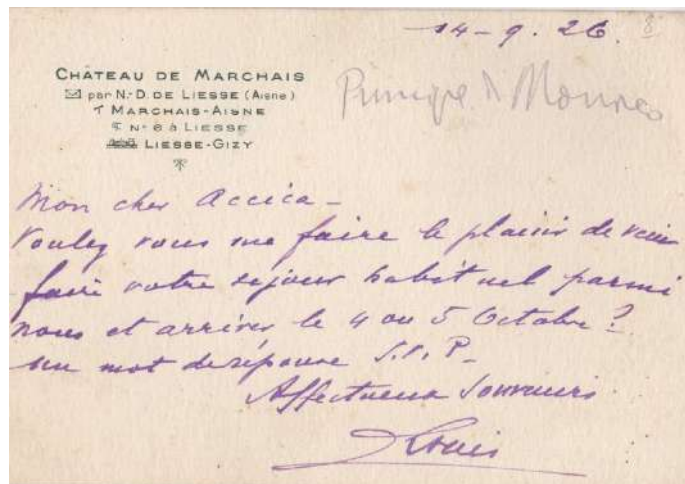 14-9.26.
8
CHÂTEAU DE MARCHAIS
par N.-D. DE LIESSE (Aisne)
MARCHAIS-AISNE
N° 6 à LIESSE
LIESSE-GIZY
Principe d Monaco
Mon cher Accica-
Voulez vous me faire le plaisir de venir
faire votre séjour habituel parmi
nous et arriver le 4 ou 5 Octobre?
un mot de réponse S.V.P-
Affectueux souvenirs
Louis